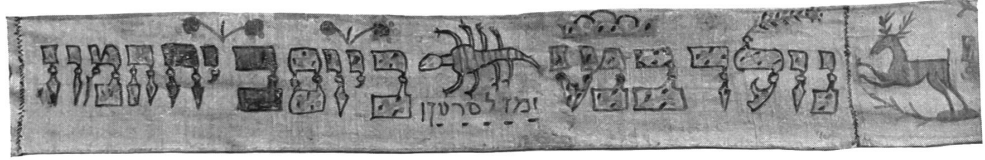 נולד במט ביום ב יח תמוז
ומזל סרטן